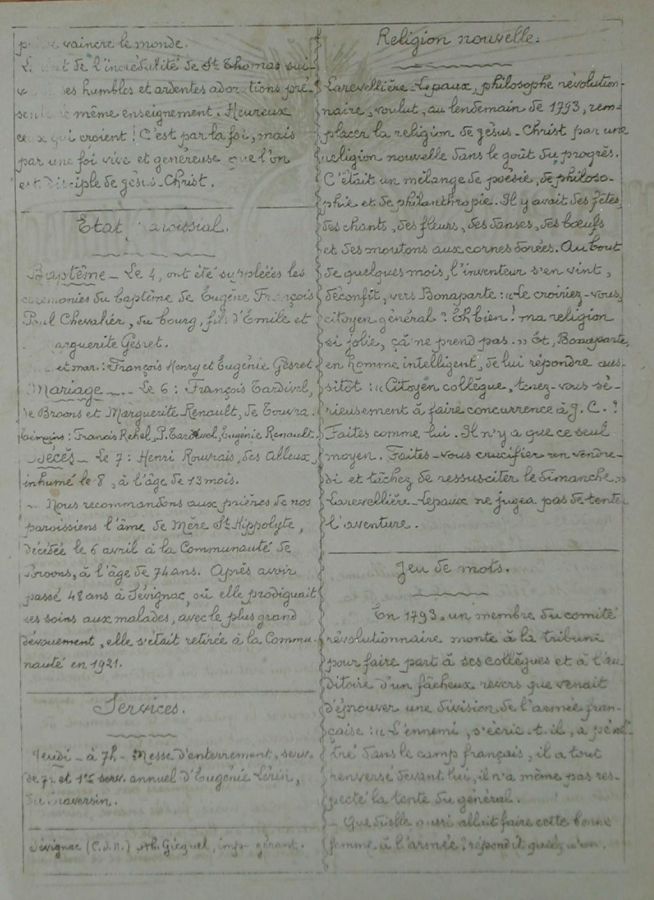 vaincre le monde.
de l'incrédulité de St Thomas sui-
ses humbles et ardentes adorations pré-
même enseignement. Heureux
ceux qui croient ! C'est par la foi, mais
par une foi vive et généreuse que l'on
est disciple de Jésus-Christ.
Etat paroissial.
Baptême - Le 4, ont été suppléées les
cérémonies du baptême de Eugène François
Paul Chevalier, du bourg, fils d'Emile et
Marguerite Gesret.
et mar : François Henry et Eugénie Gesret
Mariage - Le 6 : François Tardivel,
de Broons et Marguerite Renault, de
témoins : Francis Rehel, P. Tardivel, Eugénie Renault
Décès - Le 7 : Henri Rouvrais, des Alleux,
inhumé le 8, à l'âge de 13 mois.
- Nous recommandons aux prières de nos
paroissiens l'âme de Mère St Hippolyte,
décédée le 6 avril à la Communauté de
Broons, à l'âge de 74 ans. Après avoir
passé 48 ans à Sévignac, où elle prodiguait
ses soins aux malades, avec le plus grand
dévouement, elle s'était retirée à la Commu-
nauté en 1921.
Services.
Jeudi - à 7h - Messe d'enterrement, serv.
de 7e et 1er serv. annuel d'Eugénie
Sévignac (C.d.N.) Gicquel, imp-gérant.
Religion nouvelle.
Larevellière-Lepaux, philosophe révolution-
naire, voulut, au lendemain de 1793, rem-
placer la religion de Jésus-Christ par une
religion nouvelle dans le goût du progrès.
C'était un mélange de poésie, de philoso-
phie et de philanthropie. Il y avait des fêtes,
des chants, des fleurs, des danses, des bœufs
et des moutons aux cornes dorées. Au bout
de quelques mois, l'inventeur s'en vint,
déconfit, vers Bonaparte : « Le croiriez-vous,
citoyen général ? Eh bien ! ma religion
si jolie, ça ne prend pas. » Et, Bonaparte,
en homme intelligent, de lui répondre aus-
sitôt : « Citoyen collègue, tenez-vous sé-
rieusement à faire concurrence à J.C. ?
Faites comme lui. Il n'y a que ce seul
moyen. Faites-vous crucifier un vendre-
di et tâchez de ressusciter le dimanche »
Larevellière-Lepaux ne jugea pas de tenter
l'aventure.
Jeu de mots.
En 1793, un membre du comité
révolutionnaire monte à la tribune
pour faire part à ses collègues et à l'au-
ditoire d'un fâcheux revers que venait
d'éprouver une division de l'armée fran-
çaise : « L'ennemi, s'écrie-t-il, a péné-
tré dans le camp français, il a tout
renversé devant lui, il n'a même pas res-
pecté la tente du général.
- Que diable aussi allait faire cette bonne
femme à l'armée, répond it quelqu'un.